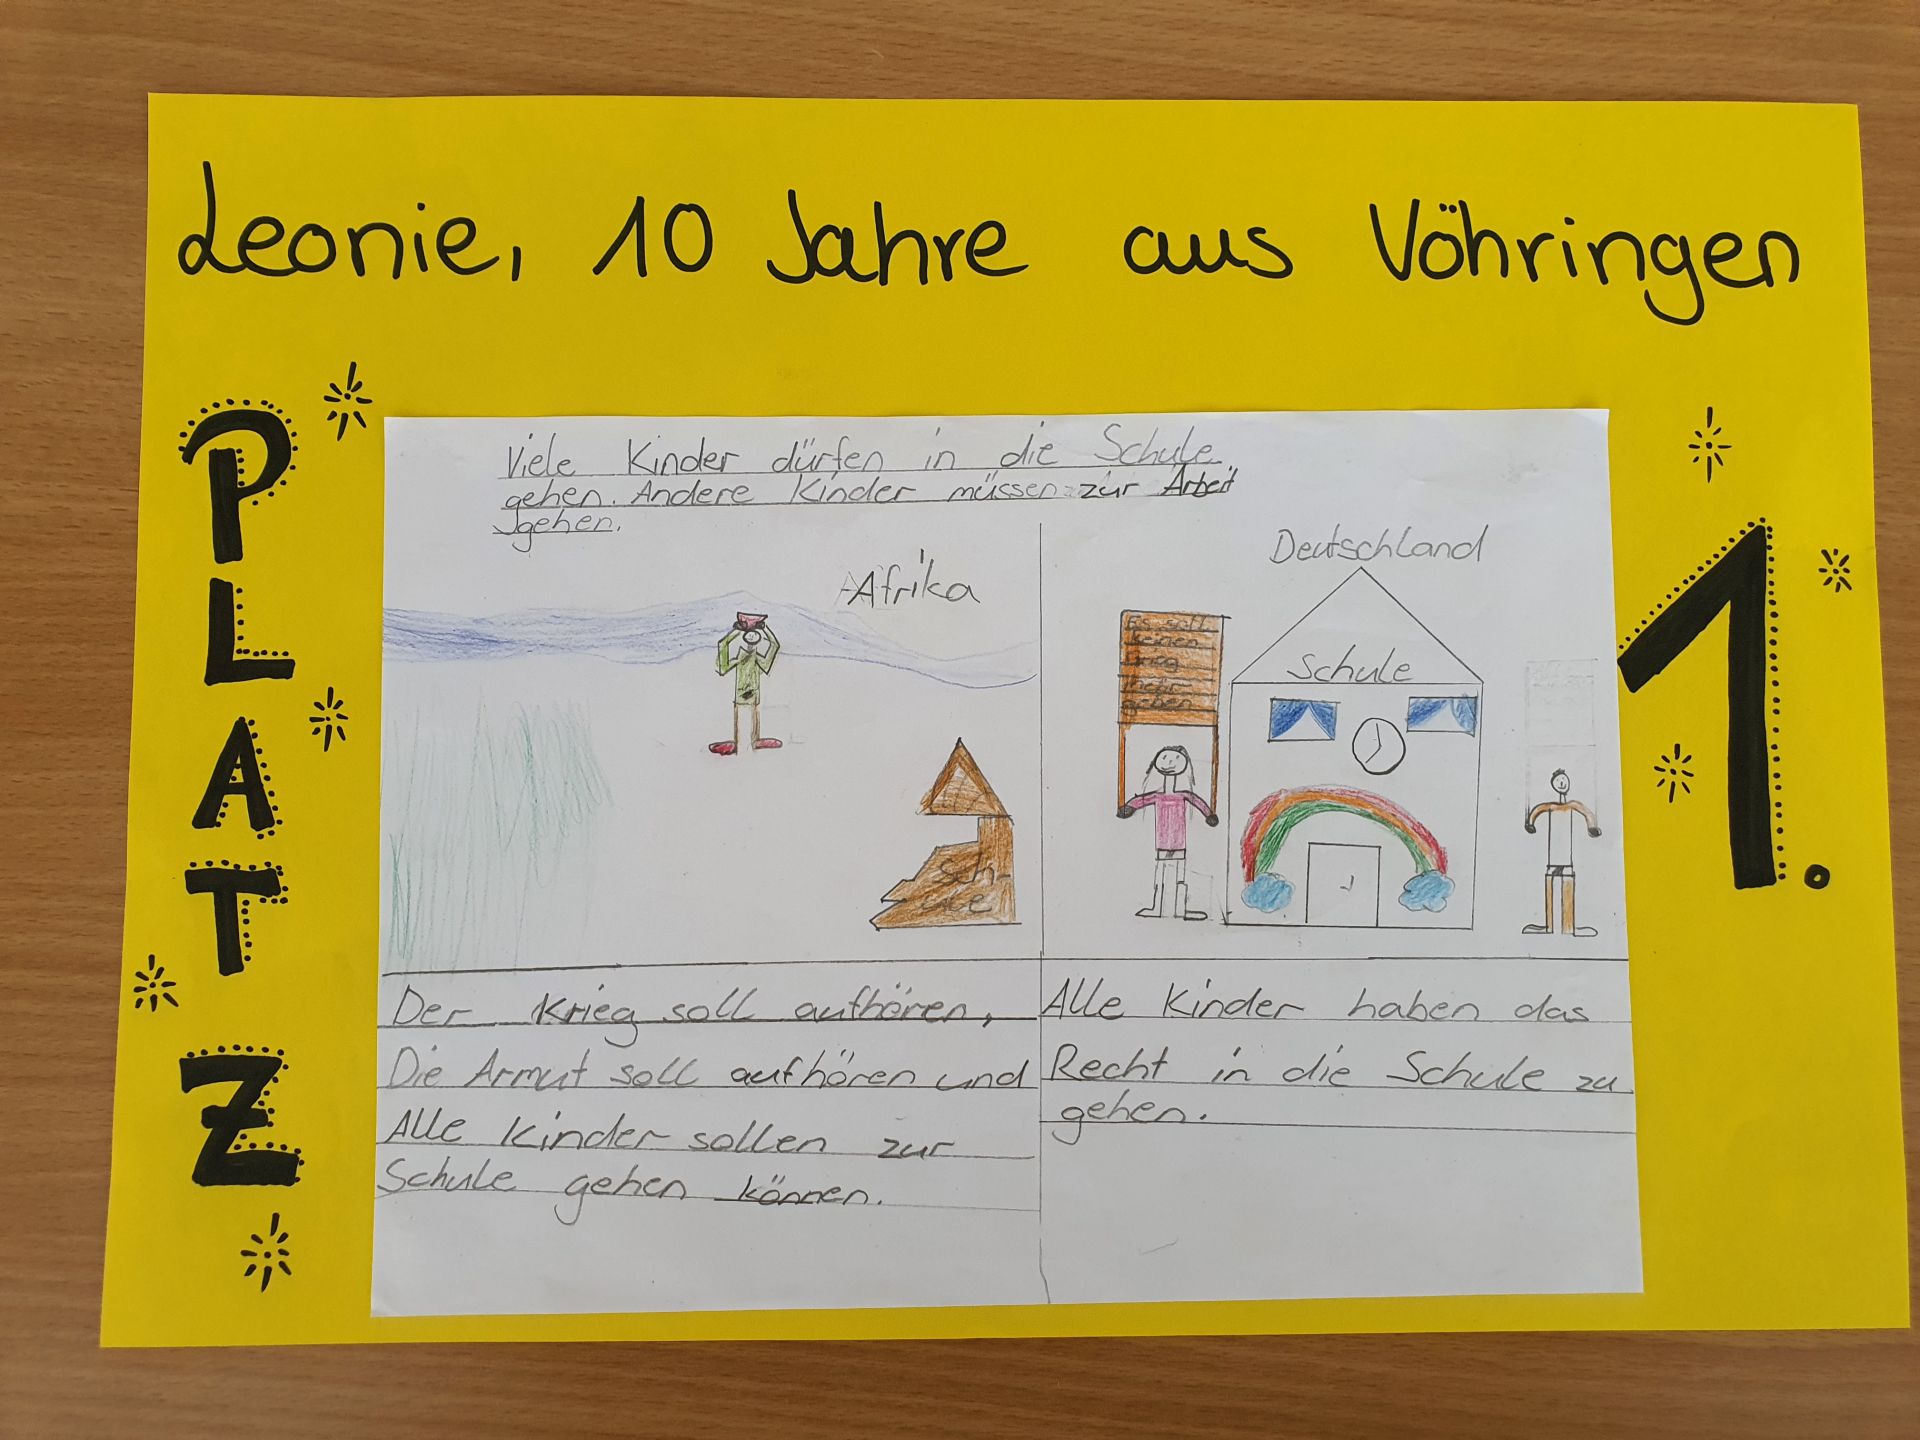 Leonie, 10 Jahre aus Vöhringen
PLATZ
1.
Viele Kinder dürfen in die Schule
gehen. Andere Kinder müssen zur Arbeit
gehen.
Afrika
Sch-
ule
Deutschland
Es soll
keinen
Krieg
mehr
geben
Schule
Der Krieg soll aufhören,
Die Armut soll aufhören und
Alle Kinder sollen zur
Schule gehen können.
Alle Kinder haben das
Recht in die Schule zu
gehen.